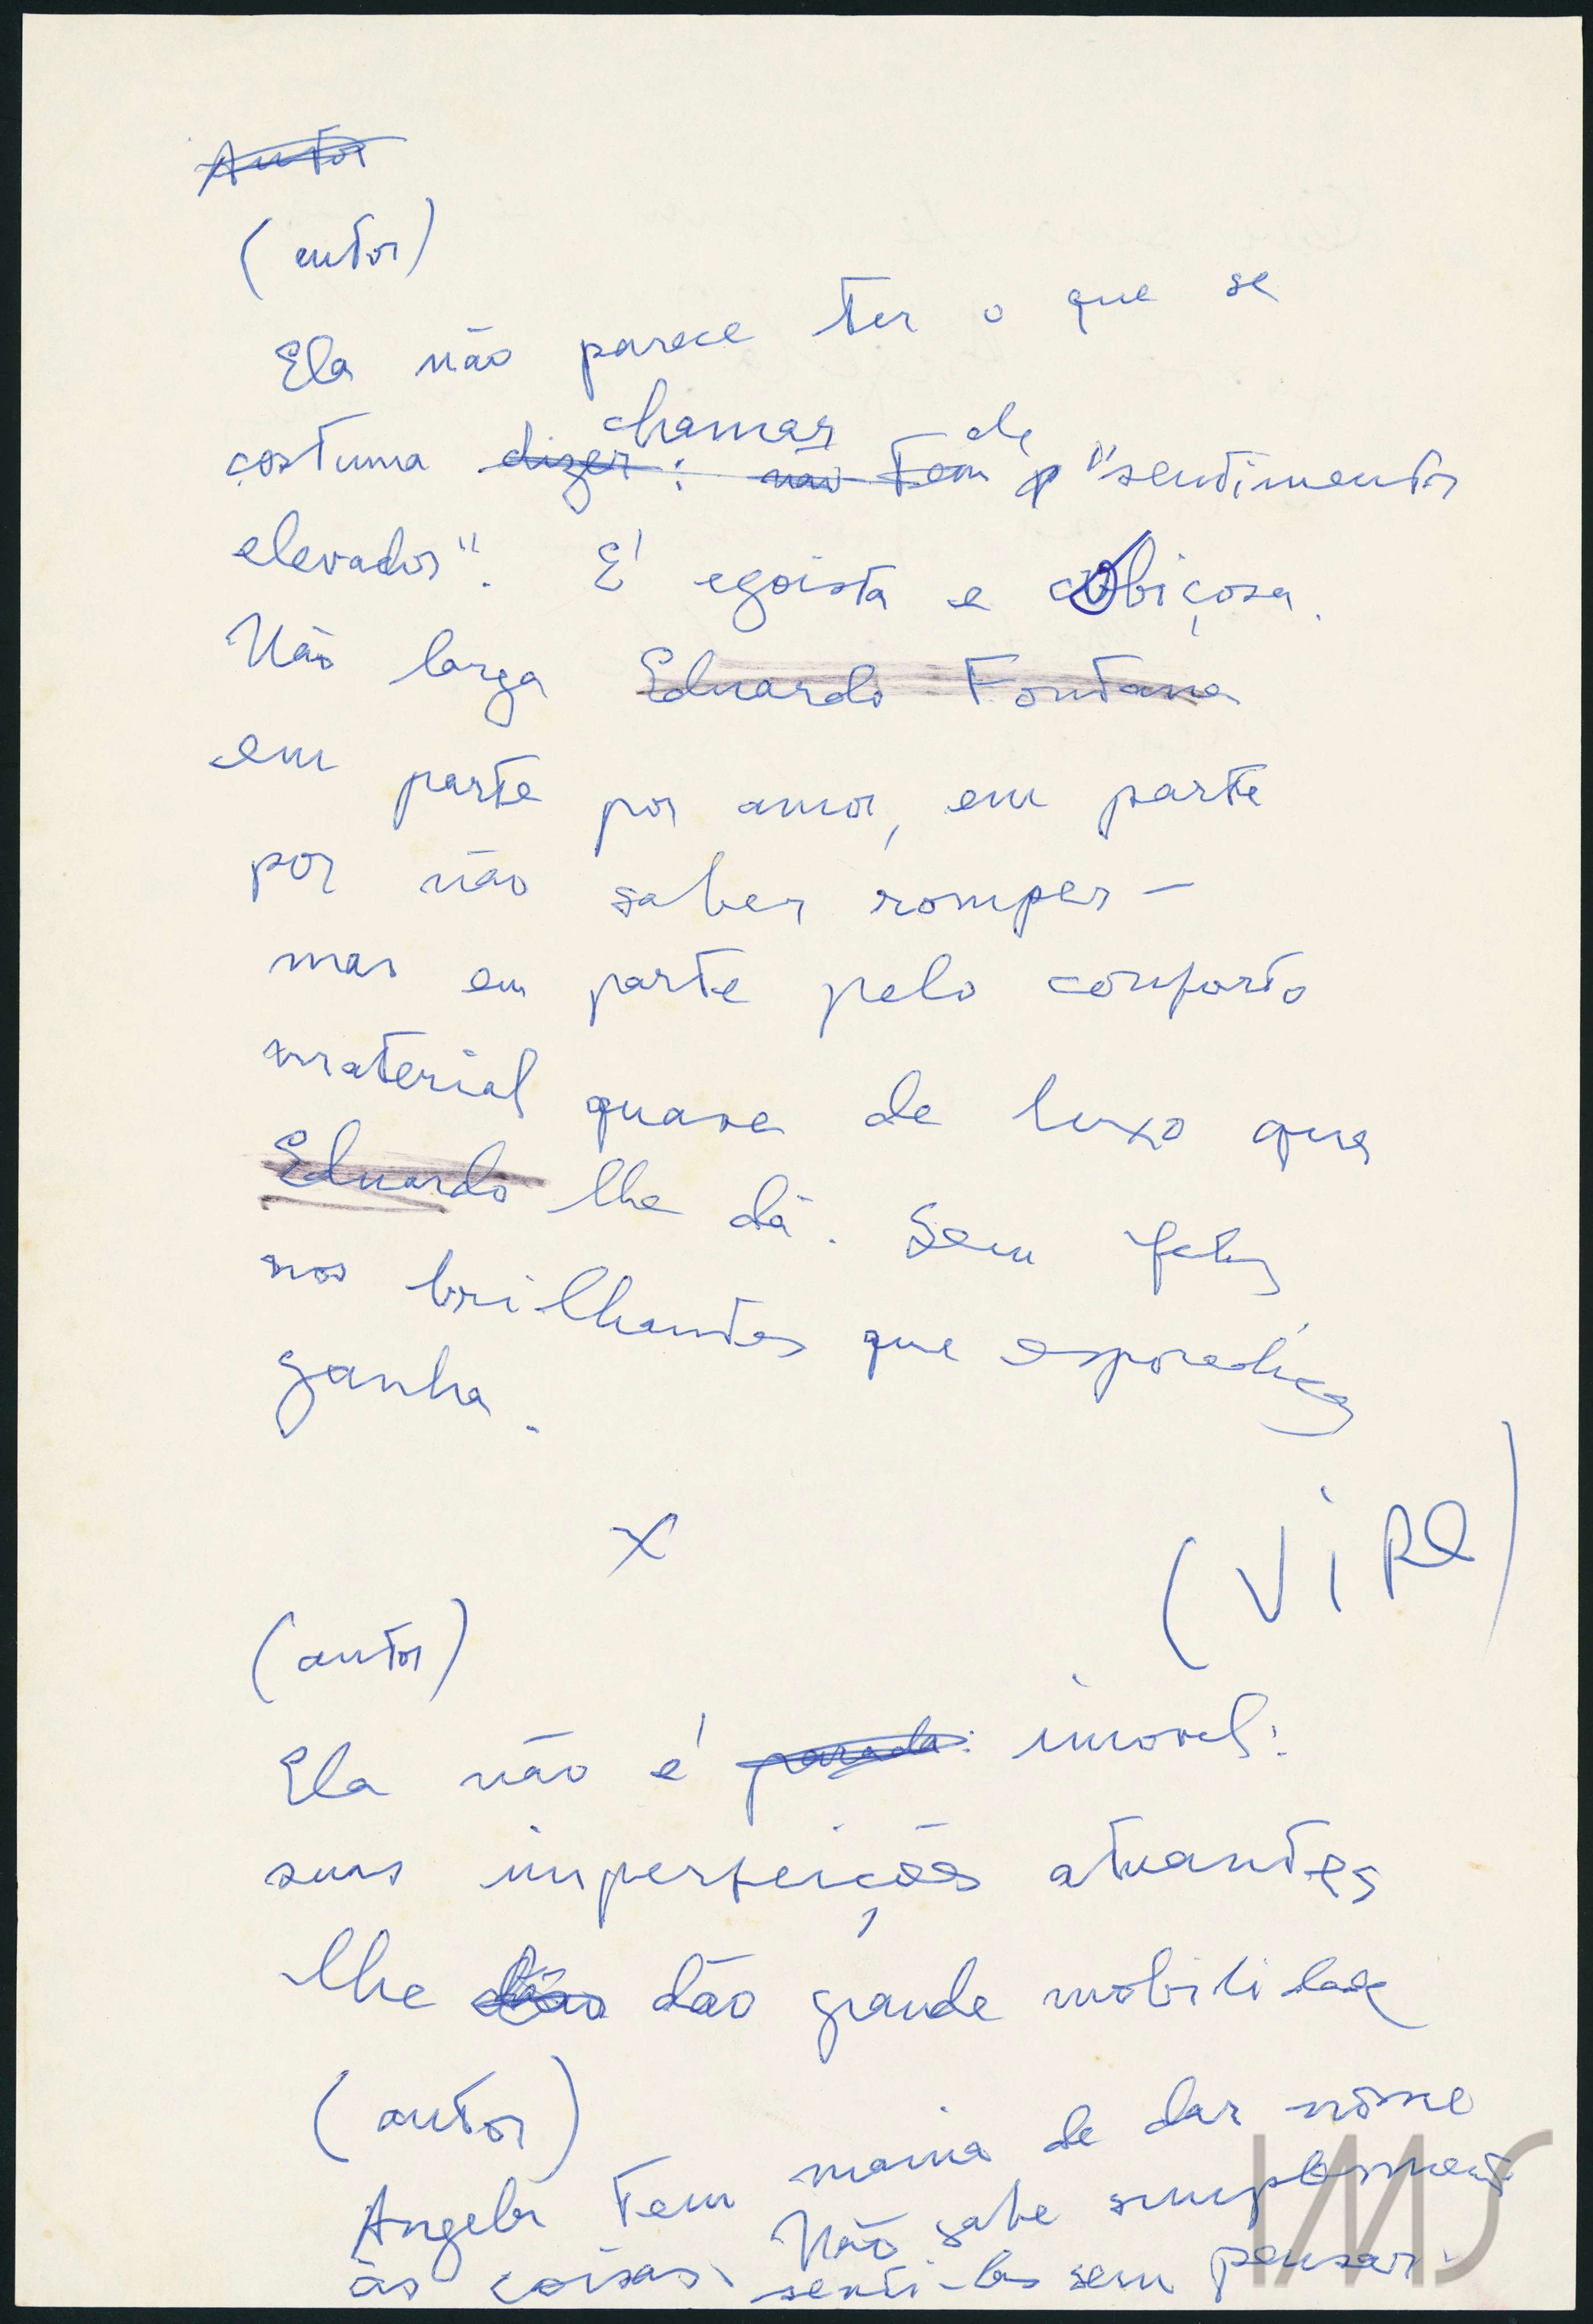 Autor
(autor)
Ela não parece ter o que se
chamar de
costuma dizer: não tem "sentimentos
elevados". É egoista e cobiçosa.
Não larga Eduardo Fontana
em parte por amor, em parte
por não saber romper –
mas em parte pelo conforto
material quase de luxo que
Eduardo lhe dá. Sem
nos brilhantes que
ganha.
X
(VIRE)
(autor)
Ela não é parada: imovel:
suas imperfeições atuantes
lhe dão dão grande mobilidade
(autor)
Angela tem mania de dar nome
às coisas. Não sabe simplesmente
senti-las sem pensar.
IMS